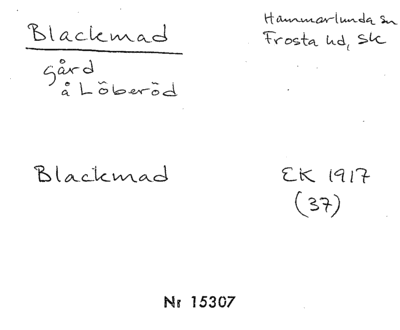 Blackmad
Hammarlunda sn
Frosta hd, Sk
gård
å Löberöd
Blackmad
EK 1917
(37)
Nr 15307